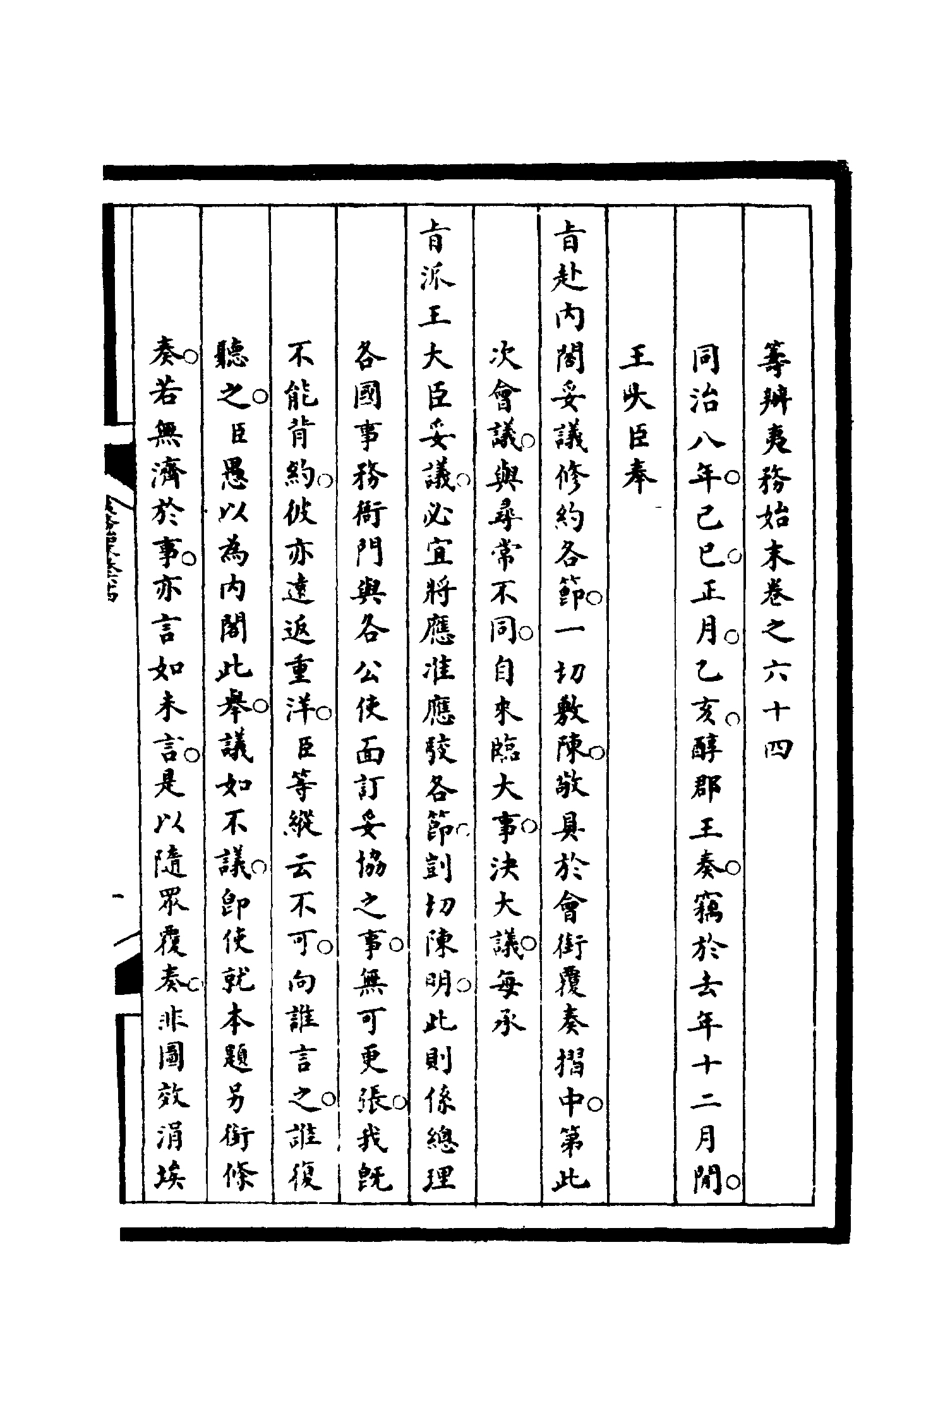 籌辦夷務始末卷之六十四
同治八年○己巳○正月○乙亥○醇郡王奏○竊於去年十二月閒○
王大臣奉
旨赴內閣妥議修約各節○一切敷陳○敬具於會銜覆奏摺中○第此
次會議○與尋常不同○自來臨大事○決大議○每承
旨派王大臣妥議○必宜將應准應駮各節○剴切陳明○此則係總理
各國事務衙門與各公使面訂妥協之事○無可更張○我旣
不能背約○彼亦遠返重洋○臣等縱云不可○向誰言之○誰復
聽之○臣愚以為內閣此舉○議如不議○卽使就本題另銜條
奏○若無濟於事○亦言如未言○是以隨眾覆奏○非圖效涓埃